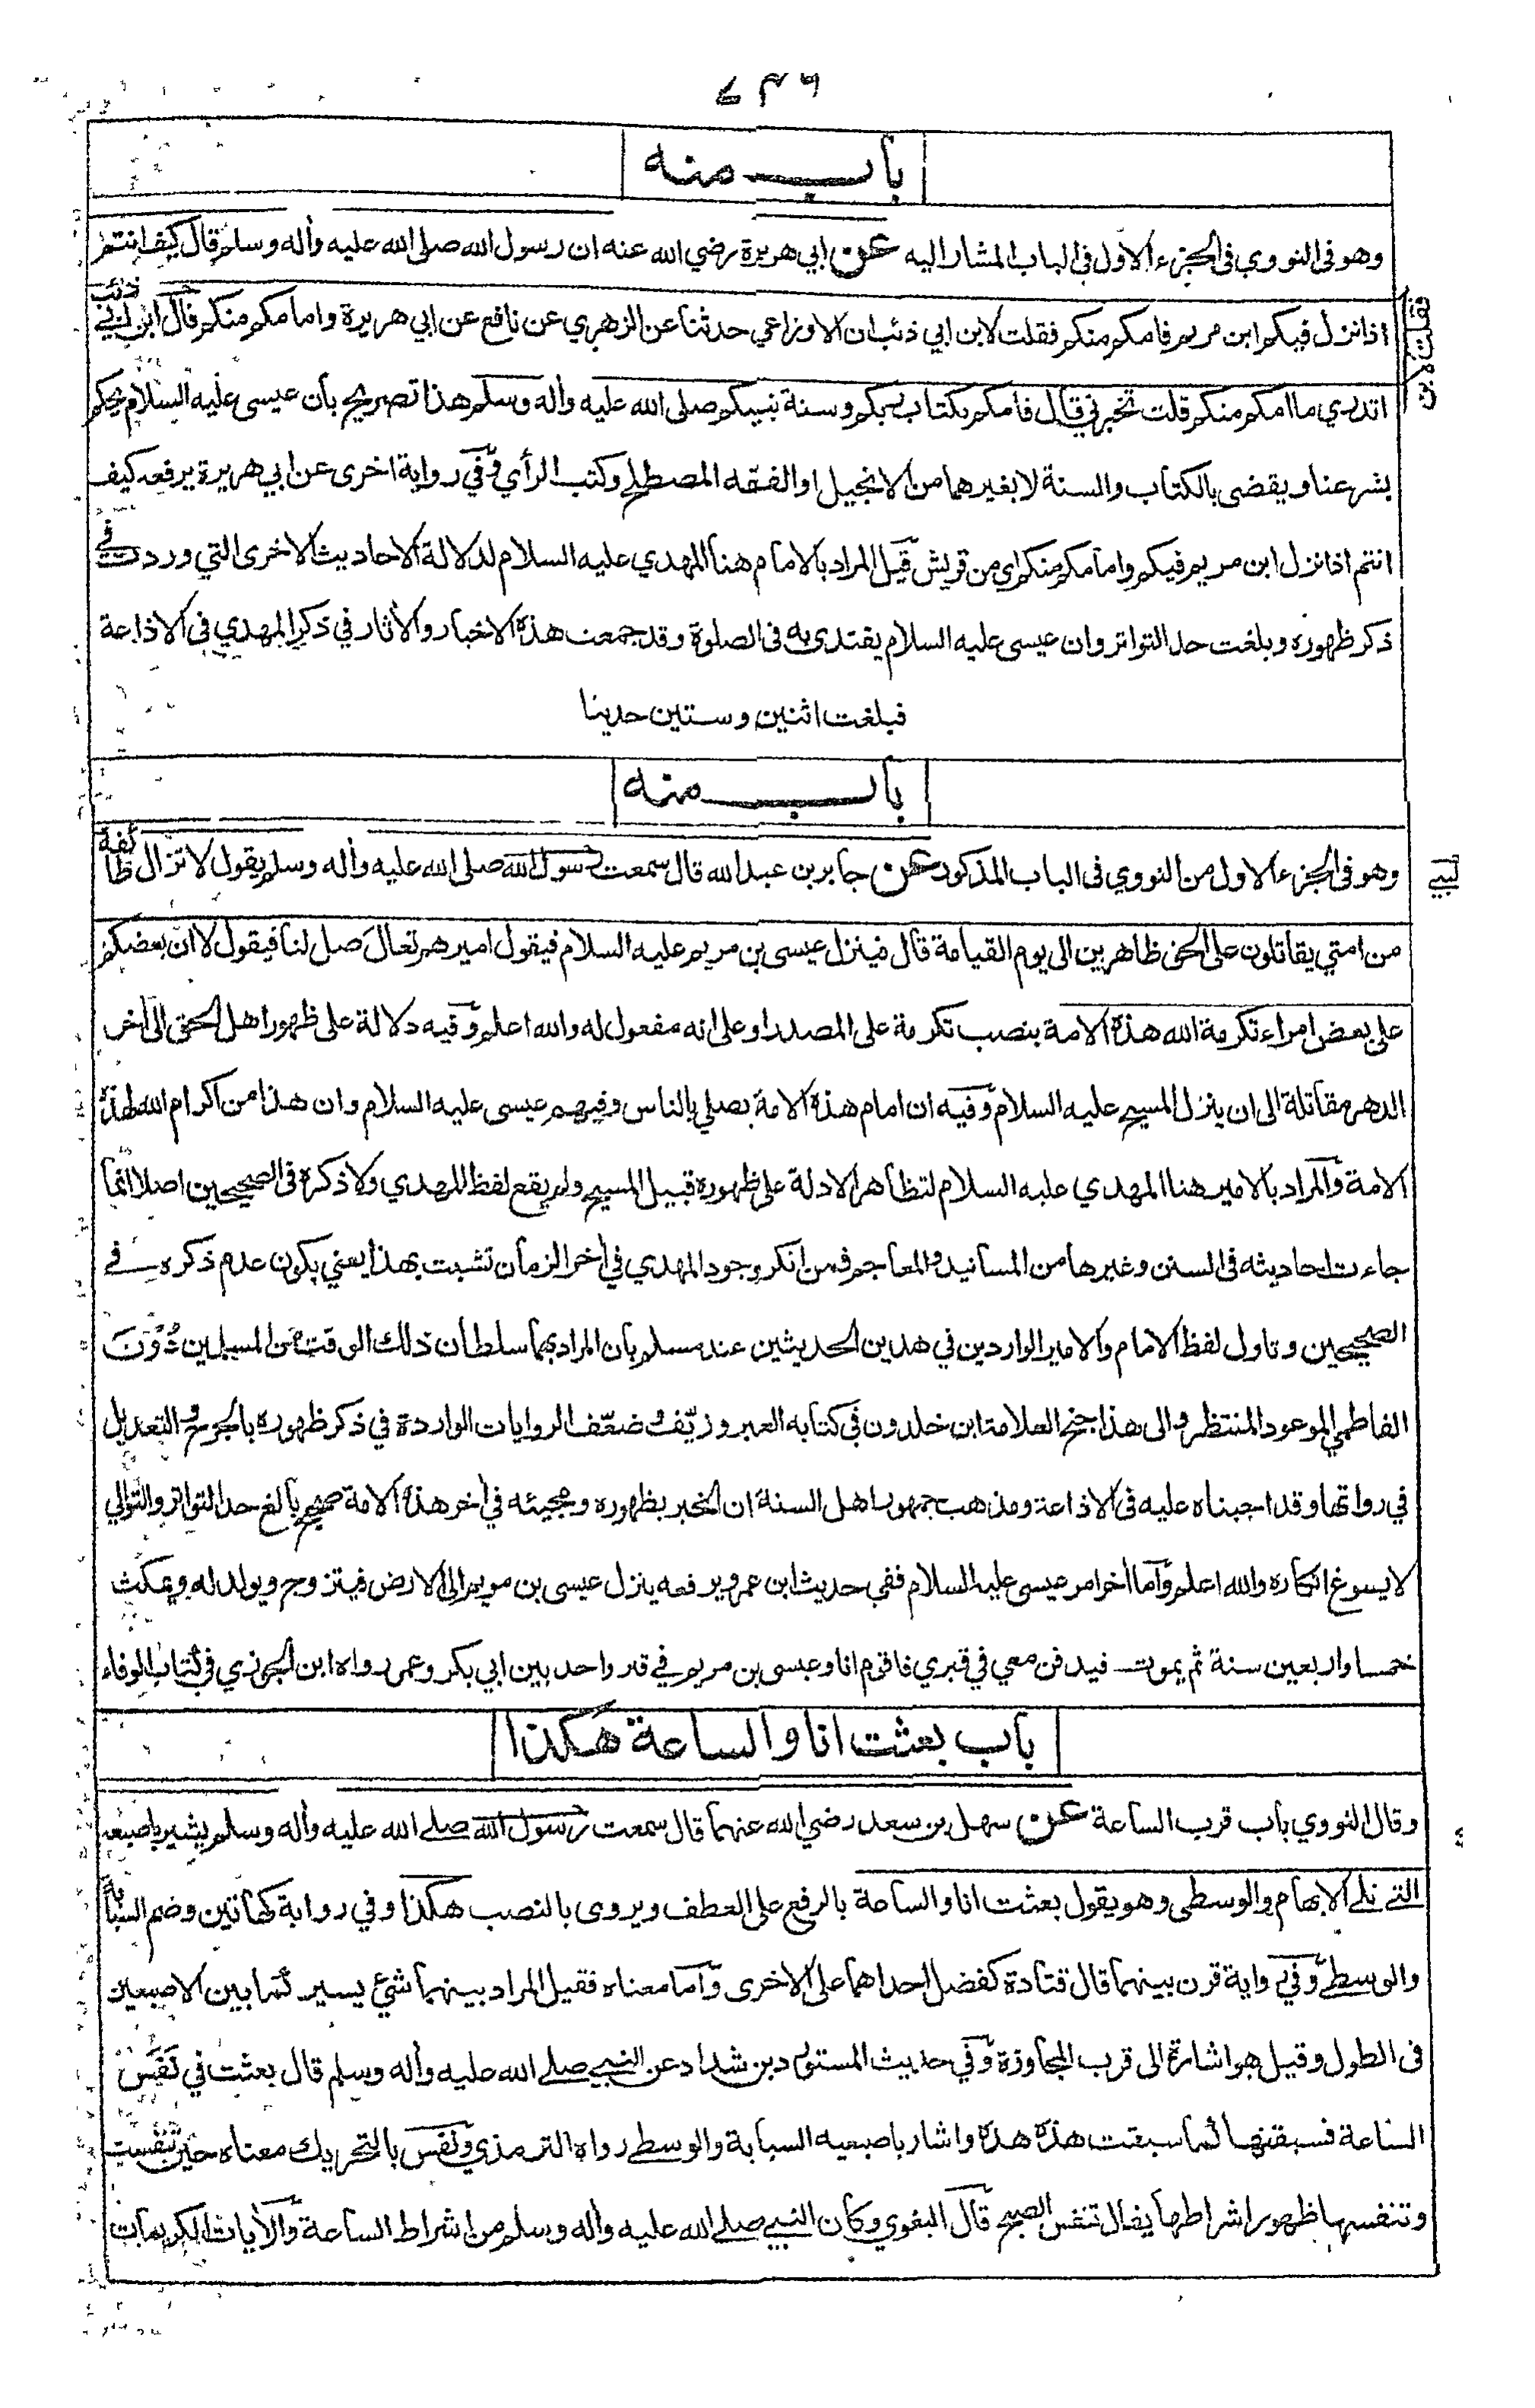 ٧٣٦
باب منه
وهو في النووي في الجزء الاول في الباب المشار اليه عن ابي هريرة رضي الله عنه ان رسول الله صلى الله عليه وأله وسلم قال كيف انتم
اذا نزل فيكم ابن مريم فامكم منكم فقلت لابن ابي ذئب ان الاوزاعي حدثنا عن الزهري عن نافع عن ابي هريرة وامامكم منكم قال ابن ابي ذئب
اتدري ما امكم منكم قلت تخبرني قال فامكم بكتاب ربكم وسنة نبيكم صلى الله عليه وأله وسلم هذا تصريح بأن عيسى عليه السلام يحكم
بشرعنا ويقضى بالكتاب والسنة لا بغيرهما من الانجيل او الفقه المصطلح وكتب الرأي وفي رواية اخرى عن ابي هريرة يرفعه كيف
انتم اذا نزل ابن مريم فيكم وامامكم منكم اي من قريش قيل المراد بالامام هنا المهدي عليه السلام لدلالة الاحاديث الاخرى التي وردت في
ذكر ظهوره وبلغت حد التواتر وان عيسى عليه السلام يقتدى به في الصلوة وقد جمعت هذه الاخبار والأثار في ذكر المهدي في الاذاعة
فبلغت اثنين وستين حديثا
باب منه
وهو في الجزء الاول من النووي في الباب المذكور عن جابر بن عبد الله قال سمعت رسول الله صلى الله عليه وأله وسلم يقول لا تزال طائفة
من امتي يقاتلون على الحق ظاهرين الى يوم القيامة قال فينزل عيسى بن مريم عليه السلام فيقول اميرهم تعال صل لنا فيقول لا ان بعضكم
على بعض امراء تكرمة الله هذه الامة بنصب تكرمة على المصدر او على انه مفعول له والله اعلم وفيه دلالة على ظهور اهل الحق الى أخر
الدهر مقاتلة الى ان ينزل المسيح عليه السلام وفيه ان امام هذه الامة يصلي بالناس وفيهم عيسى عليه السلام وان هذا من اكرام الله لهذه
الامة والمراد بالامير هنا المهدي عليه السلام لتظاهر الادلة على ظهوره قبيل المسيح ولم يقع لفظ المهدي ولا ذكره في الصحيحين اصلا انما
جاءت احاديثه في السنن وغيرها من المسانيد والمعاجم فمن انكر وجود المهدي في أخر الزمان تشبت بهذا يعني بكون عدم ذكره في
الصحيحين وتاول لفظ الامام والامير الواردين في هذين الحديثين عند مسلم بأن المراد بهما سلطان ذلك الوقت من المسلمين دون
الفاطمي الموعود المنتظر والى هذا جنح العلامة ابن خلدون في كتابه العبر وزيّف وضعّف الروايات الواردة في ذكر ظهوره بالجرح والتعديل
في رواتها وقد اجبناه عليه في الاذاعة ومذهب جمهور اهل السنة ان الخبر بظهوره ومجيئه في أخر هذه الامة صحيح بالغ حد التواتر والتوالي
لا يسوغ انكاره والله اعلم وأما أخر امر عيسى عليه السلام ففي حديث ابن عمرو يرفعه ينزل عيسى بن مريم الى الارض فيتزوج ويولد له ويمكث
خمسا واربعين سنة ثم يموت فيدفن معي في قبري فاقوم انا وعيسى بن مريم في قبر واحد بين ابي بكر وعمر رواه ابن الجوزي في كتاب الوفاء
باب بعثت انا والساعة هكذا
وقال النووي باب قرب الساعة عن سهل بن سعد رضي الله عنهما قال سمعت رسول الله صلى الله عليه وأله وسلم يشير باصبعه
التي تلي الابهام والوسطى وهو يقول بعثت انا والساعة بالرفع على العطف ويروى بالنصب هكذا وفي رواية كهاتين وضم السبابة
والوسطى وفي رواية قرن بينهما قال قتادة كفضل احداهما على الاخرى وأما معناه فقيل المراد بينهما شئ يسير كما بين الاصبعين
في الطول وقيل هو اشارة الى قرب المجاوزة وفي حديث المستورد بن شداد عن النبي صلى الله عليه وأله وسلم قال بعثت في نَفَس
الساعة فسبقتها كما سبقت هذه هذه واشار باصبعيه السبابة والوسطى رواه الترمذي ونفس بالتحريك معناه حين تنفست
وتنفسها ظهور اشراطها يقال تنفس الصبح قال البغوي وكان النبي صلى الله عليه وأله وسلم من اشراط الساعة والأيات الكريمات